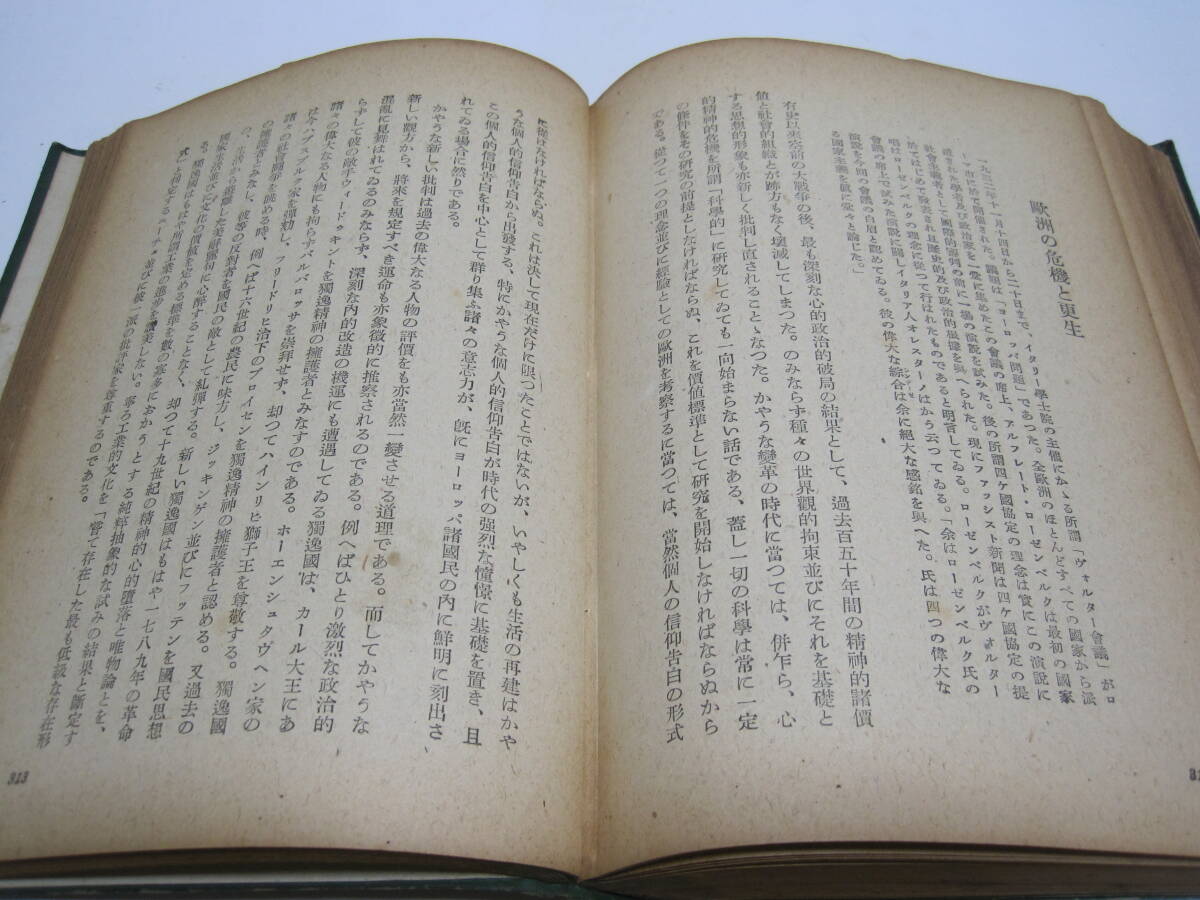 歐洲の危機と更生
一九三二年十一月十四日から二十日まで、イタリー學士院の主催にかゝる所謂「ヴォルター會議」がロ
ーマ市に於て開催された。議題は「ヨーロッパ問題」であつた。全歐洲のほとんどすべての國家から派
遣された學者及び政治家を一堂に集めたこの會議の席上、アルフレート・ローゼンベルクは最初の國家
社會主義者として國際的聽衆の前に一場の演說を試みた。後の所謂四ケ國協定の理念は實にこの演說に
於てはじめて發表され且歷史的及び政治的根據を與へられた。現にファッシスト新聞は四ケ國協定の提
唱はローゼンベルクの理念に從つて行はれたものであると明言してゐる。ローゼンベルクがヴォルター
會議の席上で試みた演說に關しイタリア人オレスターノはかう云つてゐる。「余はローゼンベルク氏の
演說を今囘の會議の白眉と認めてゐる。彼の偉大な綜合は余に絕大な感銘を與へた。氏は四つの偉大な
る國家主義を眞に堂々と論じた。」
有史以來空前の大戰爭の後、最も深刻な心的政治的破局の結果として、過去百五十年間の精神的諸價
値と社會的組織とが跡方もなく壞滅してしまつた。のみならず種々の世界觀的拘束並びにそれを基礎と
する思想的形象も亦新しく批判し直されることゝなつた。かやうな變革の時代に當つては、併乍ら、心
的精神的危機を所謂「科學的」に硏究してゐても一向始まらない話である、蓋し一切の科學は常に一定
の條件をその硏究の前提としなければならぬ、これを價値標準として硏究を開始しなければならぬから
である。從つて一つの理念並びに經驗としての歐洲を考察するに當つては、當然個人の信仰告白の形式
に從はなければならぬ。これは決して現在だけに限つたことではないが、いやしくも生活の再建はかや
うな個人的信仰告白から出發する、特にかやうな個人的信仰告白が時代の强烈な憧憬に基礎を置き、且
この個人的信仰告白を中心として群り集ふ諸々の意志力が、旣にヨーロッパ諸國民の內に鮮明に刻出さ
れてゐる場合に然りである。
かやうな新しい批判は過去の偉大なる人物の評價をも亦當然一變させる道理である。而してかやうな
新しい觀方から、將來を規定すべき運命も亦象徵的に推察されるのである。例へばひとり激烈な政治的
混亂に見舞はれてゐるのみならず、深刻な內的改造の機運にも遭遇してゐる獨逸國は、カール大王にあ
らずして彼の敵手ウィードゥキントを獨逸精神の擁護者とみなすのである。ホーエンシュタヴヘン家の
諸々の偉大なる人物にも拘らずバルバロッサを崇拜せず、却つてハインリヒ獅子王を尊敬する。獨逸國
はハプスブルク家を彈劾し、フードリヒ治下のプロイセンを獨逸精神の擁護者と認める。又過去の
諸々の社會鬪爭を眺める時、例へば十六世紀の農民に味方し、ジッキンゲン並びにフッテンを國民思想
の擁護者とみなし、彼等の反對者を國民の敵として糺彈する。新しい獨逸國はもはや一七八九年の革命
の、生活から遊離した美辭麗句に心醉することなく、却つて十九世紀の精神的心的墮落と唯物論とを、
國家生活並びに文化の價値を定める標準を數の寡多におかうとする純粹抽象的な試みの結果と斷定す
る。獨逸國はもはや所謂工業の進步を讚美しない。寧ろ工業的文化を「嘗て存在した最も低級な存在形
式」と規定するニーチェ並びに彼一派の批評家を尊重するのである。
313